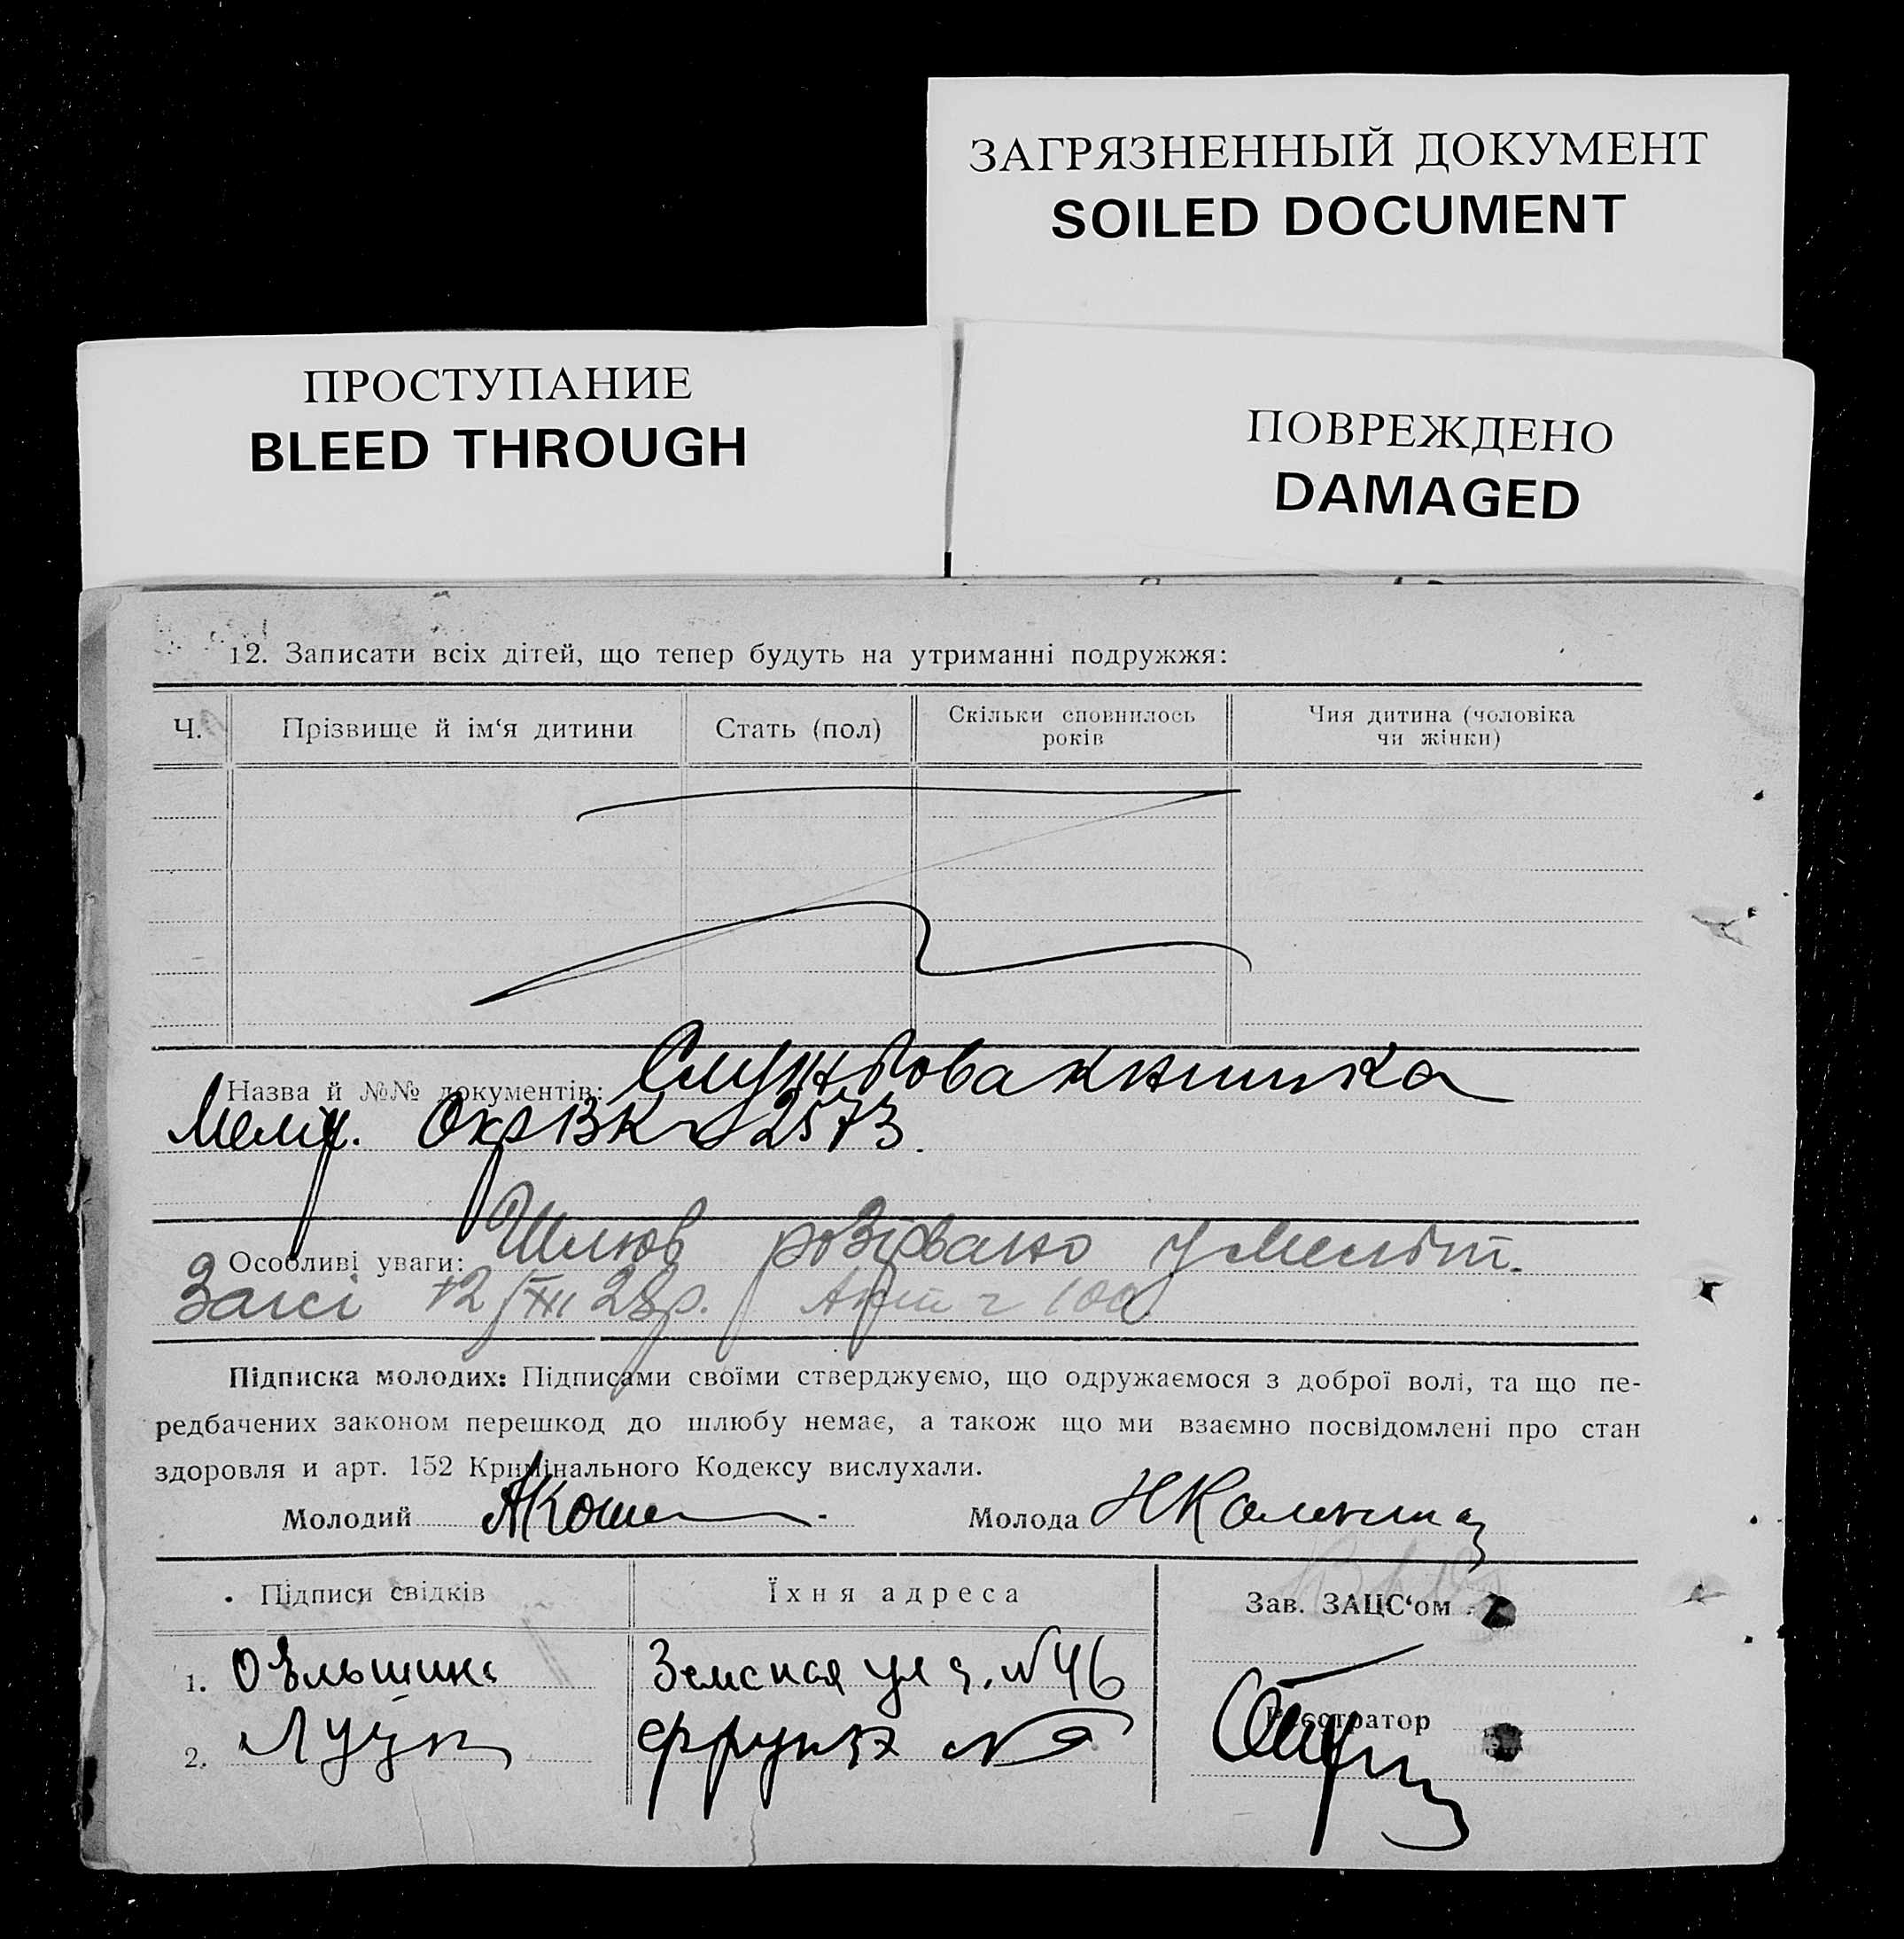 ЗАГРЯЗНЕННЫЙ ДОКУМЕНТ
SOILED DOCUMENT
ПРОСТУПАНИЕ
BLEED THROUGH
ПОВРЕЖДЕНО
DAMAGED
12. Записати всіх дітей, що тепер будуть на утриманні подружжя:
Ч.
Прізвище й ім‘я дитини
Стать (пол)
Скільки сповнилось
років
Чия дитина (чоловіка
чи жінки)
Назва й №№ документів: Службова книжка
Меліт. ОкрВК 2573.
Особливі уваги: Шлюб розірвано у Меліт.
Загсі 12/XII 28р. Акт ч 100
Підписка молодих: Підписами своїми стверджуємо, що одружаємося з доброї волі, та що пе-
редбачених законом перешкод до шлюбу немає, а також що ми взаємно посвідомлені про стан
здоровля и арт. 152 Кримінального Кодексу вислухали.
Молодий
Молода
Підписи свідків
Їхня адреса
Зав. ЗАЦС‘ом
1. Земская №46
2. Фрунзе №
Реєстратор